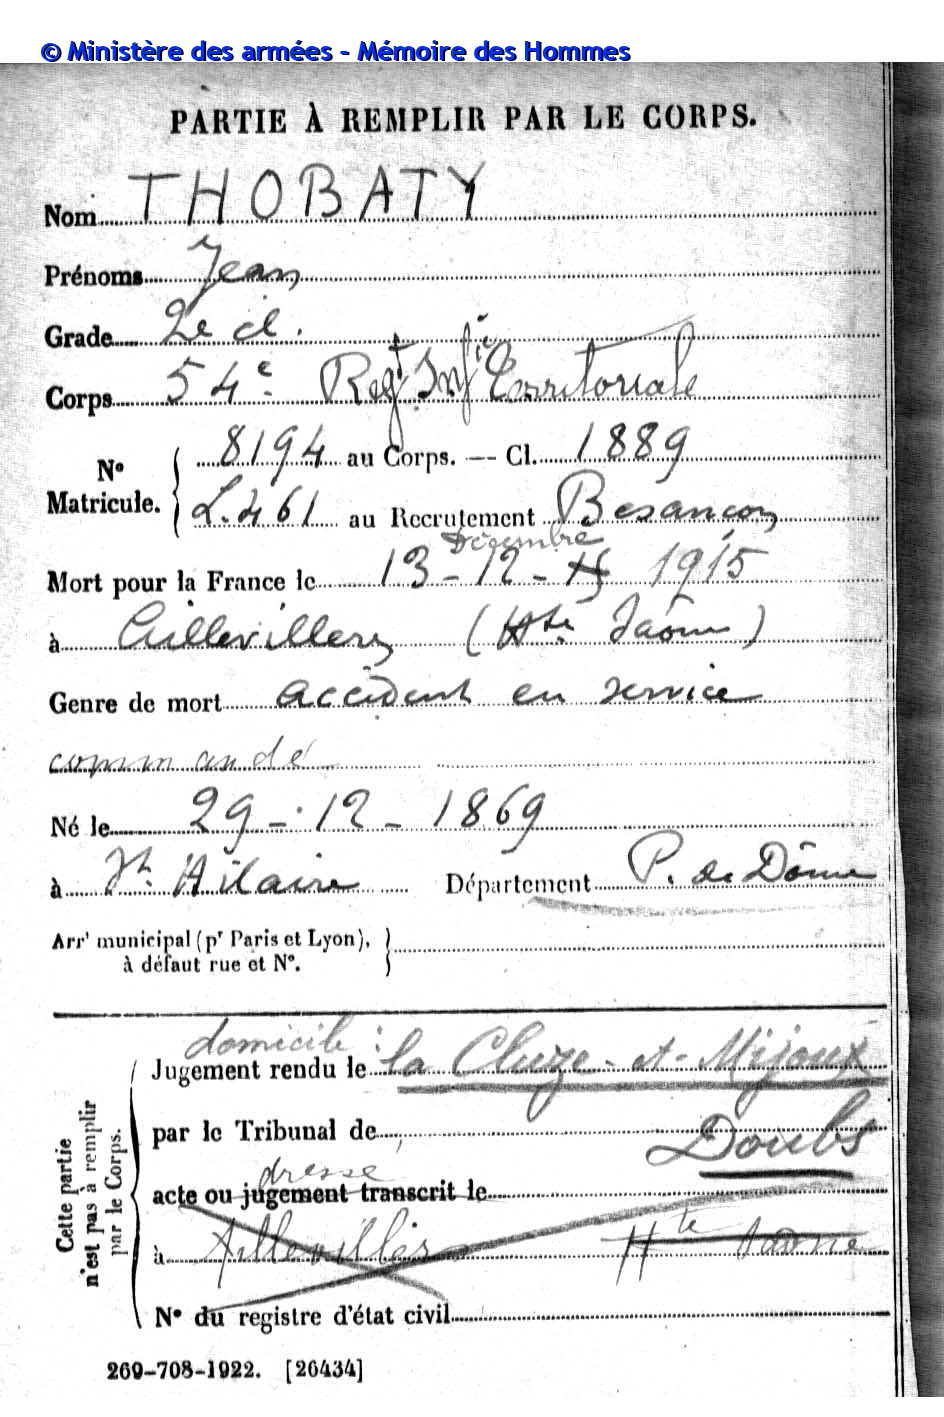 © Ministère des armées - Mémoire des Hommes
PARTIE À REMPLIR PAR LE CORPS.
Nom THOBATY
Prénoms Jean
Grade 2e cl.
Corps 54e Regt Infie Territoriale
N° Matricule. 8194 au Corps. — Cl. 1889
L. 461 au Recrutement Besançon
Décembre
Mort pour la France le 13 - 12 - 15 1915
à Aillevillers (Hte Saône)
Genre de mort accident en service
commandé
Né le 29 - 12 - 1869
à St. Hilaire Département P. de Dôme
Arrt municipal (pr Paris et Lyon), à défaut rue et N°.
domicile :
Jugement rendu le la Cluze-et-Mijoux
par le Tribunal de Doubs
dresse
acte ou jugement transcrit le
à Aillevillers Hte Saône
N° du registre d'état civil
Cette partie n'est pas à remplir par le Corps.
269-708-1922. [26434]